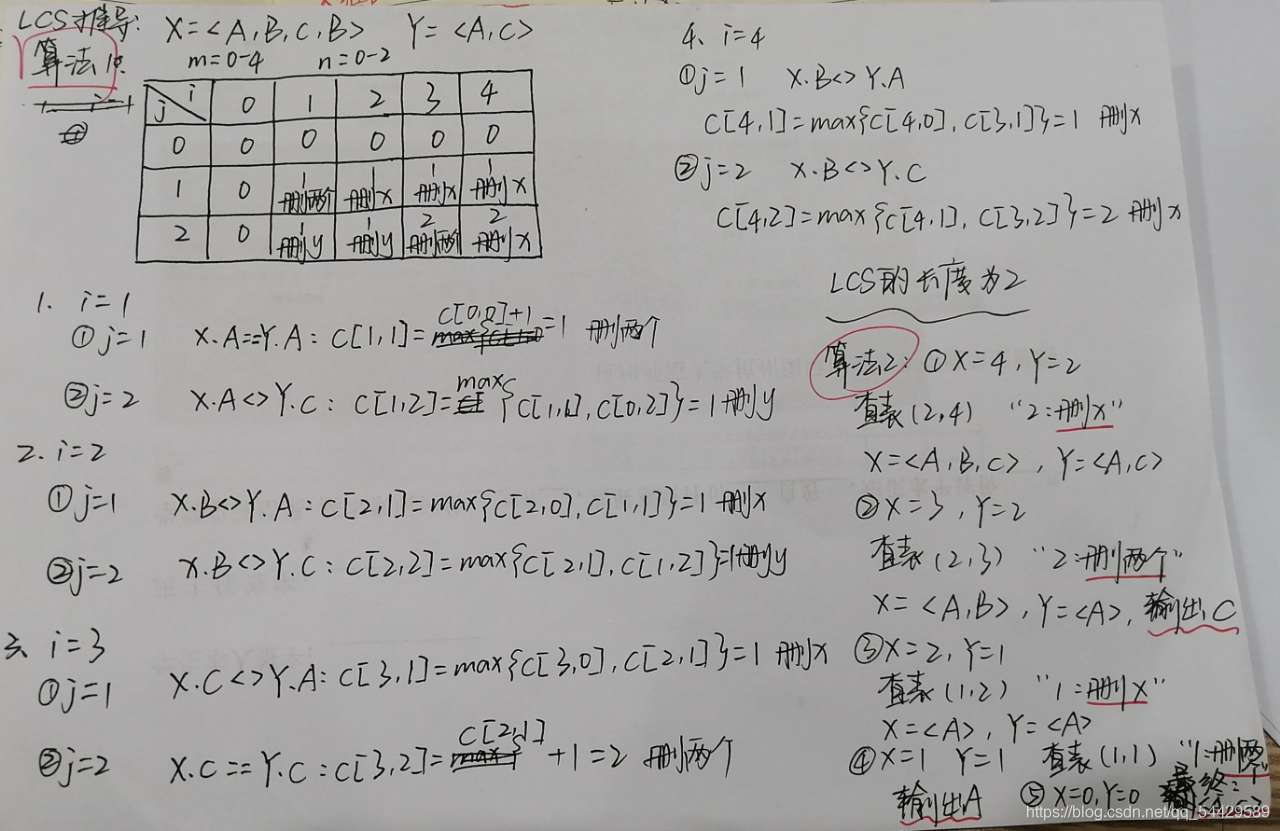 LCS推导:
算法1:
X=<A,B,C,B> Y=<A,C>
m=0-4 n=0-2
j i 0 1 2 3 4
0 0 0 0 0 0
1 0 1 删两个 1 删x 1 删x 1 删x
2 0 1 删y 1 删y 2 删两个 2 删x
1. i=1
①j=1 X.A==Y.A: C[1,1]=C[0,0]+1=1 删两个
②j=2 X.A<>Y.C: C[1,2]=max{C[1,1],C[0,2]}=1删y
2. i=2
①j=1 X.B<>Y.A: C[2,1]=max{C[2,0],C[1,1]}=1 删x
②j=2 X.B<>Y.C: C[2,2]=max{C[2,1],C[1,2]}=1删y
3、i=3
①j=1 X.C<>Y.A: C[3,1]=max{C[3,0],C[2,1]}=1 删x
②j=2 X.C==Y.C: C[3,2]=C[2,1]+1=2 删两个
4、i=4
①j=1 X.B<>Y.A
C[4,1]=max{C[4,0],C[3,1]}=1 删x
②j=2 X.B<>Y.C
C[4,2]=max{C[4,1],C[3,2]}=2 删x
LCS的长度为2
算法2: ①X=4,Y=2
查表(2,4) "2:删x"
X=<A,B,C>,Y=<A,C>
②X=3,Y=2
查表(2,3) "2:删两个"
X=<A,B>,Y=<A>,输出C
③X=2,Y=1
查表(1,2) "1:删x"
X=<A>,Y=<A>
④X=1 Y=1 查表(1,1) "1:删两个"
输出A ⑤X=0,Y=0 最终:
https://blog.csdn.net/qq_54429589